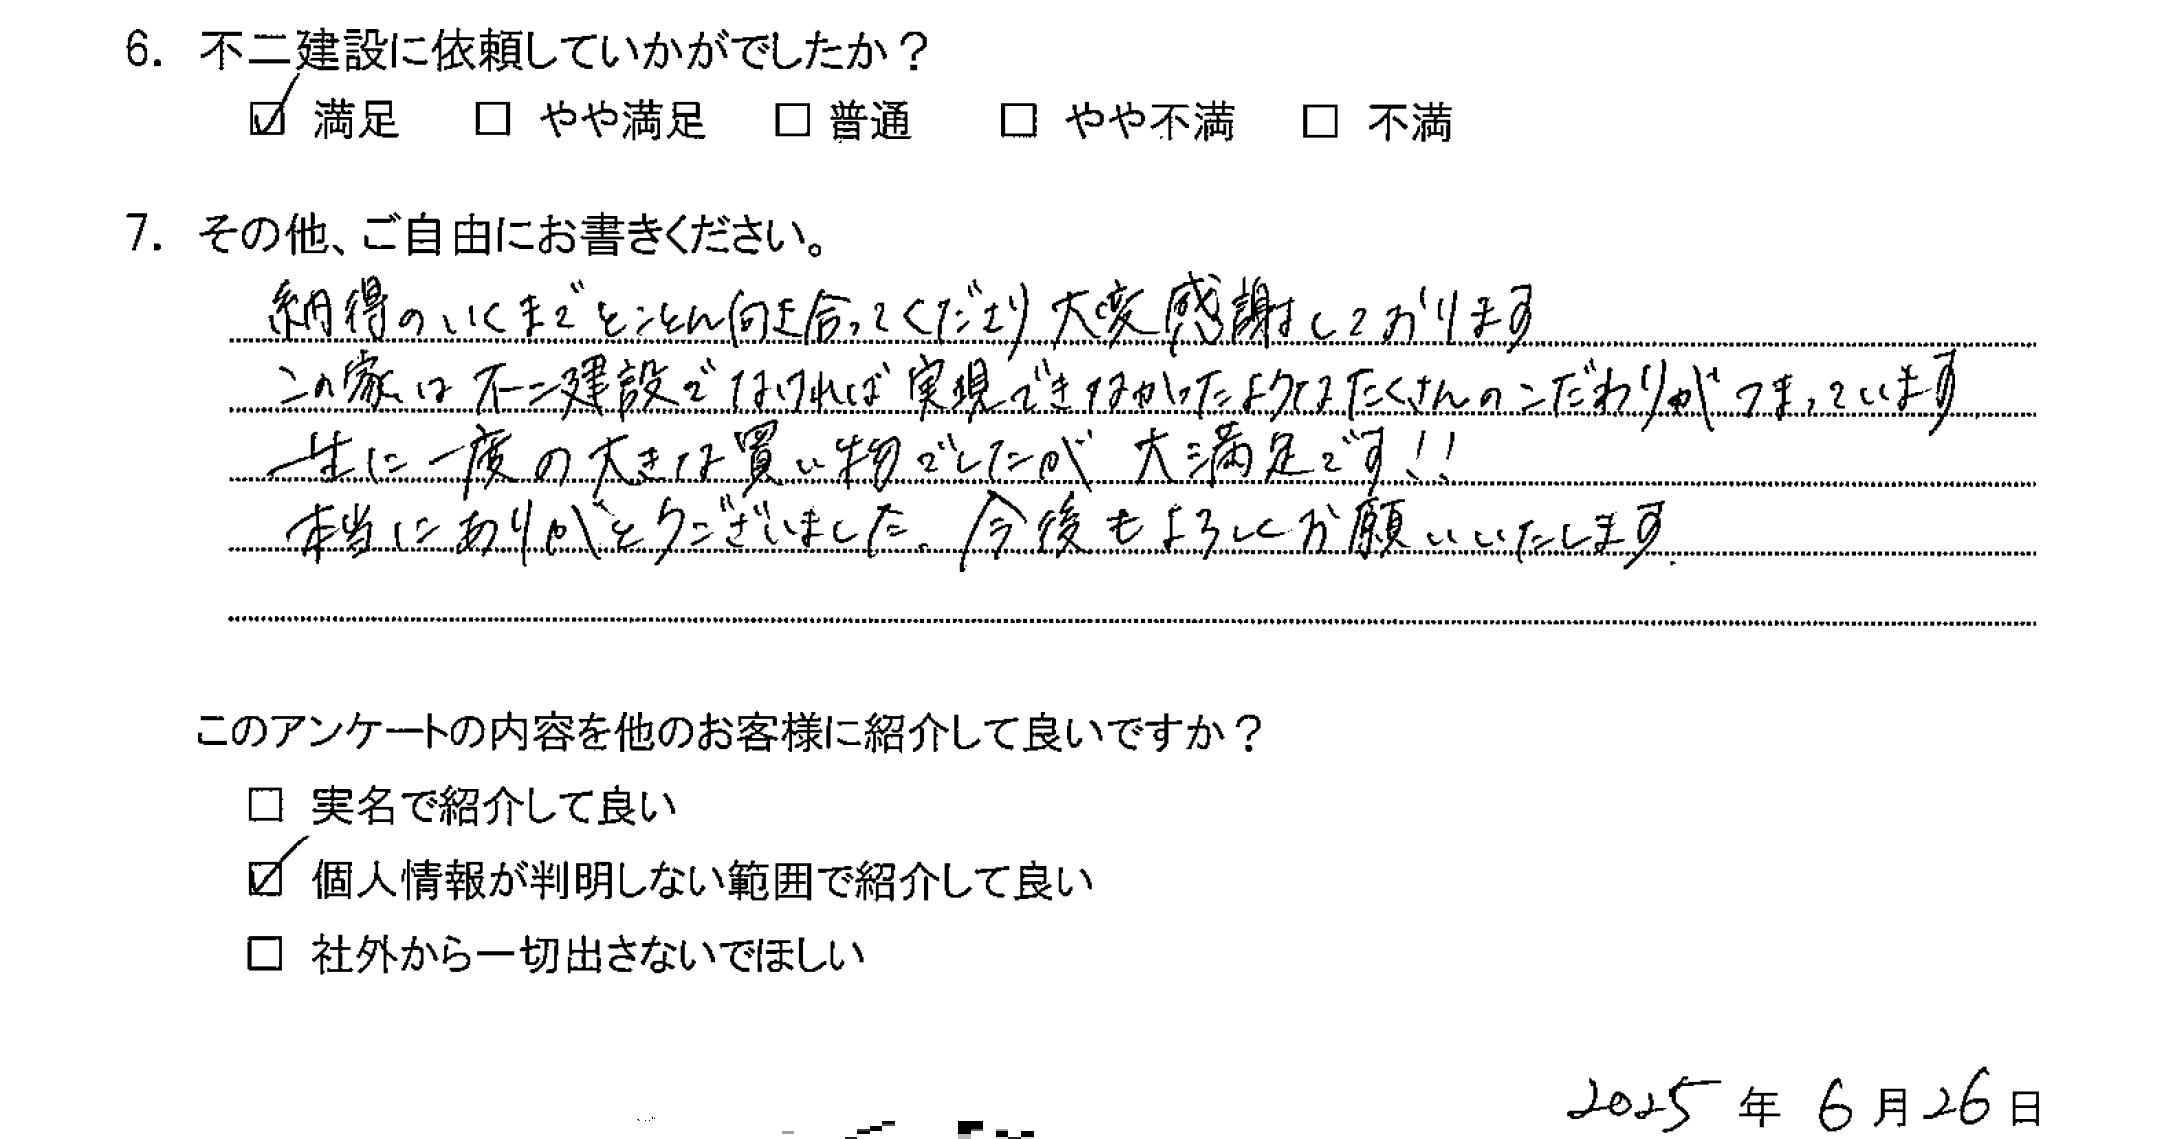 6. 不二建設に依頼していかがでしたか？
☑ 満足 □ やや満足 □ 普通 □ やや不満 □ 不満
7. その他、ご自由にお書きください。
納得のいくまでとことん向き合ってくださり大変感謝しております
この家は不二建設でなければ実現できなかったようなたくさんのこだわりがつまっています
一生に一度の大きな買い物でしたが 大満足です!!
本当にありがとうございました。今後もよろしくお願いいたします。
このアンケートの内容を他のお客様に紹介して良いですか？
□ 実名で紹介して良い
☑ 個人情報が判明しない範囲で紹介して良い
□ 社外から一切出さないでほしい
2025年 6月26日